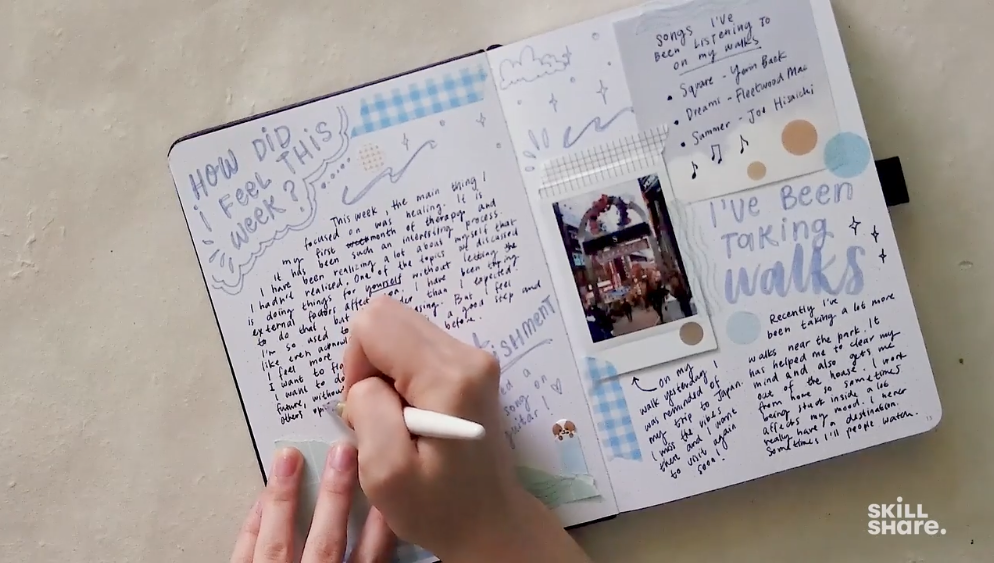 HOW DiD
i FEEL THIS
WEEK?
This week, the main thing I
focused on was healing. It is
my first month of therapy and
it has been such an interesting process.
I have been realizing a lot about myself that
I hadn't realized. One of the topics we discussed
is doing things for yourself without letting the
external factors affect you. I have been trying
to do that, but
than I expected.
I'm so used
But I feel
like even
a good step and
I feel more
before.
I want to
I want to
future, without
others
a
song on
guitar!
SONGS I'VE
BEEN LISTENING TO
ON MY WALKS
Square - Yerin Baek
Dreams - Fleetwood Mac
Summer - Joe Hisaichi
I'VE BEEN
TAKING
walks
on my
walk yesterday I
was reminded of
my trip to Japan.
I miss the vibes
there and I want
to visit again
soon!
Recently I've
been taking a lot more
walks near the park. It
has helped me to clear my
mind and also gets me
out of the house. I work
from home so sometimes
being stuck inside a lot
affects my mood. I never
really have a destination.
Sometimes I'll people watch.
SKiLL
SHaRe.